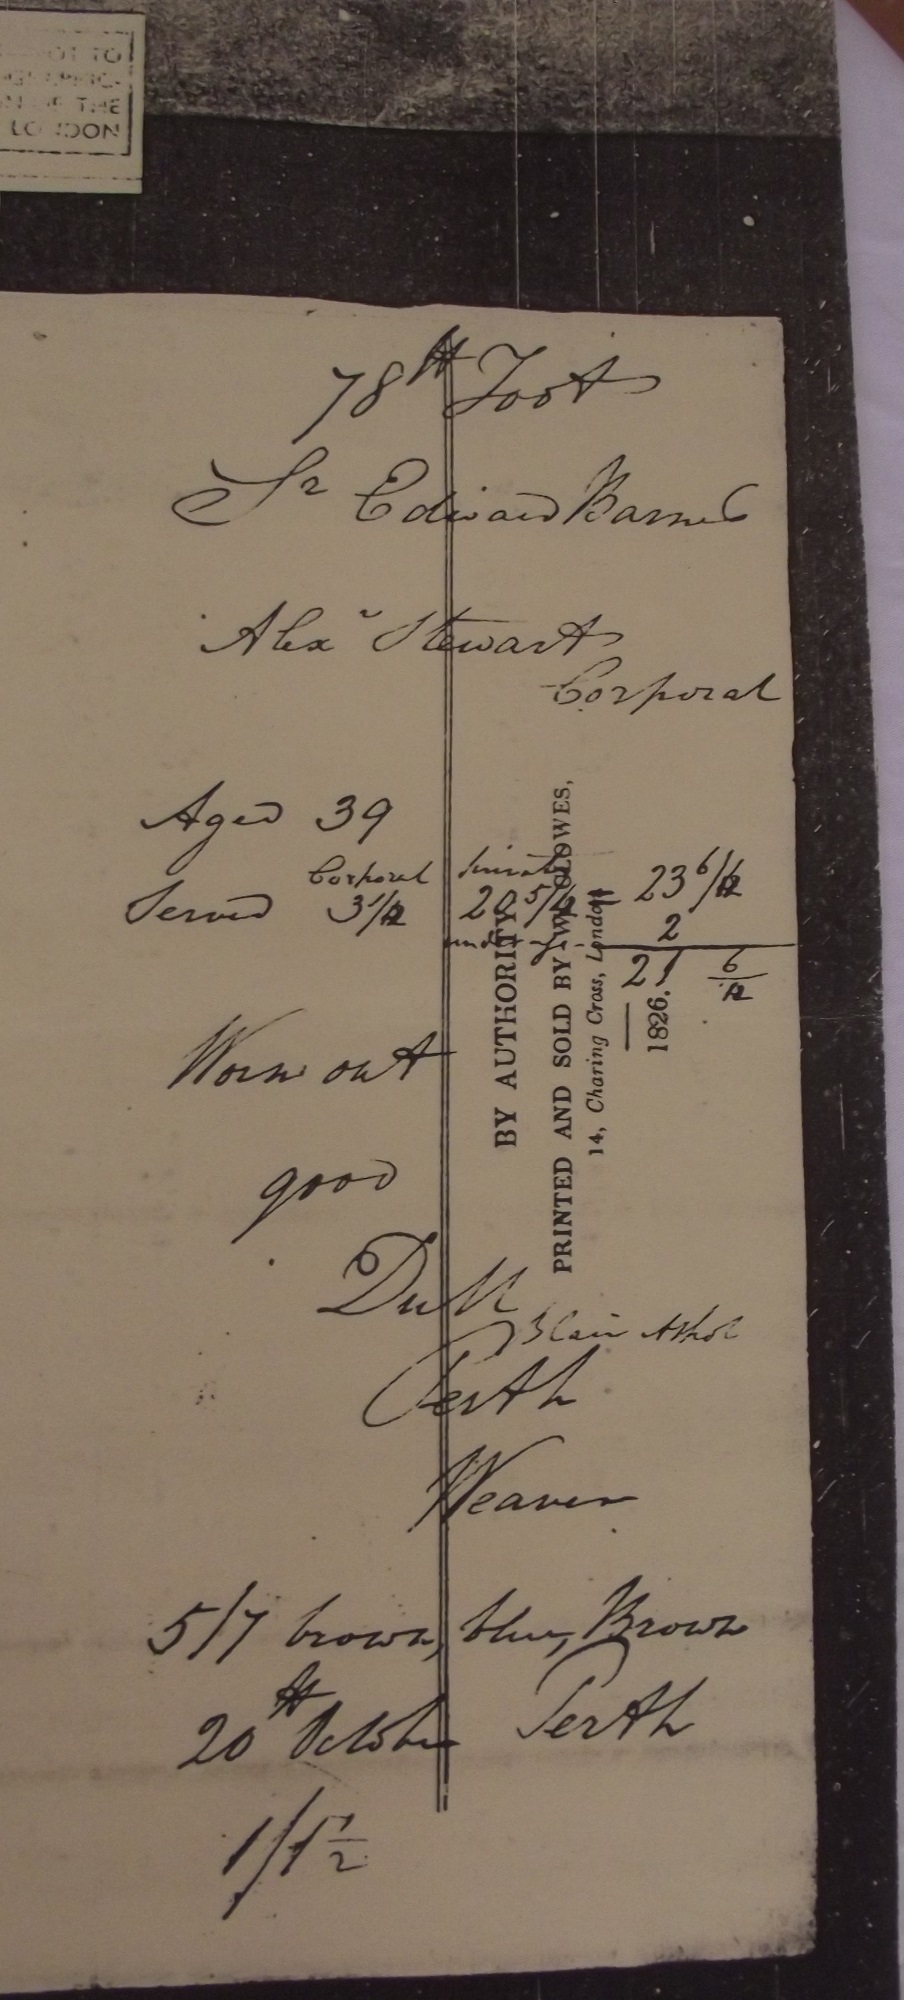 OT TO
N OF THE
LONDON
78th Foot
Sr Edward Barnes
Alexr Stewart
Corporal
Aged 39
Corporal Private
Served 3 1/12 20 5/12 = 23 6/12
under age 2
21 6/12
Worn out
good
Dull
Blair Athol
Perth
Weaver
5/7 brown, blue, Brown
20th October Perth
1/1 1/2
BY AUTHORITY
PRINTED AND SOLD BY W. CLOWES,
14, Charing Cross, London
1826.